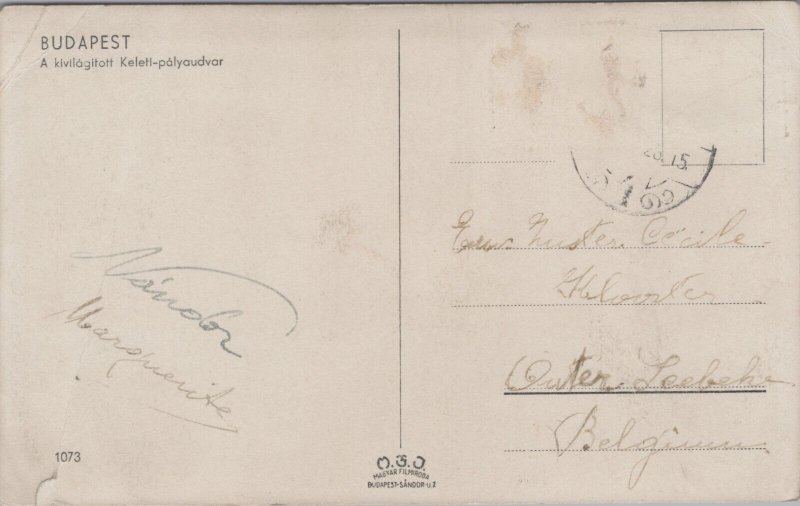 BUDAPEST
A kivilágított Keleti-pályaudvar
Nándor
Marguerite
1073
M.F.I.
MAGYAR FILMIRODA
BUDAPEST-SÁNDOR-U.7
15.
Zuster Cécile
Klooster
Outer
Belgium